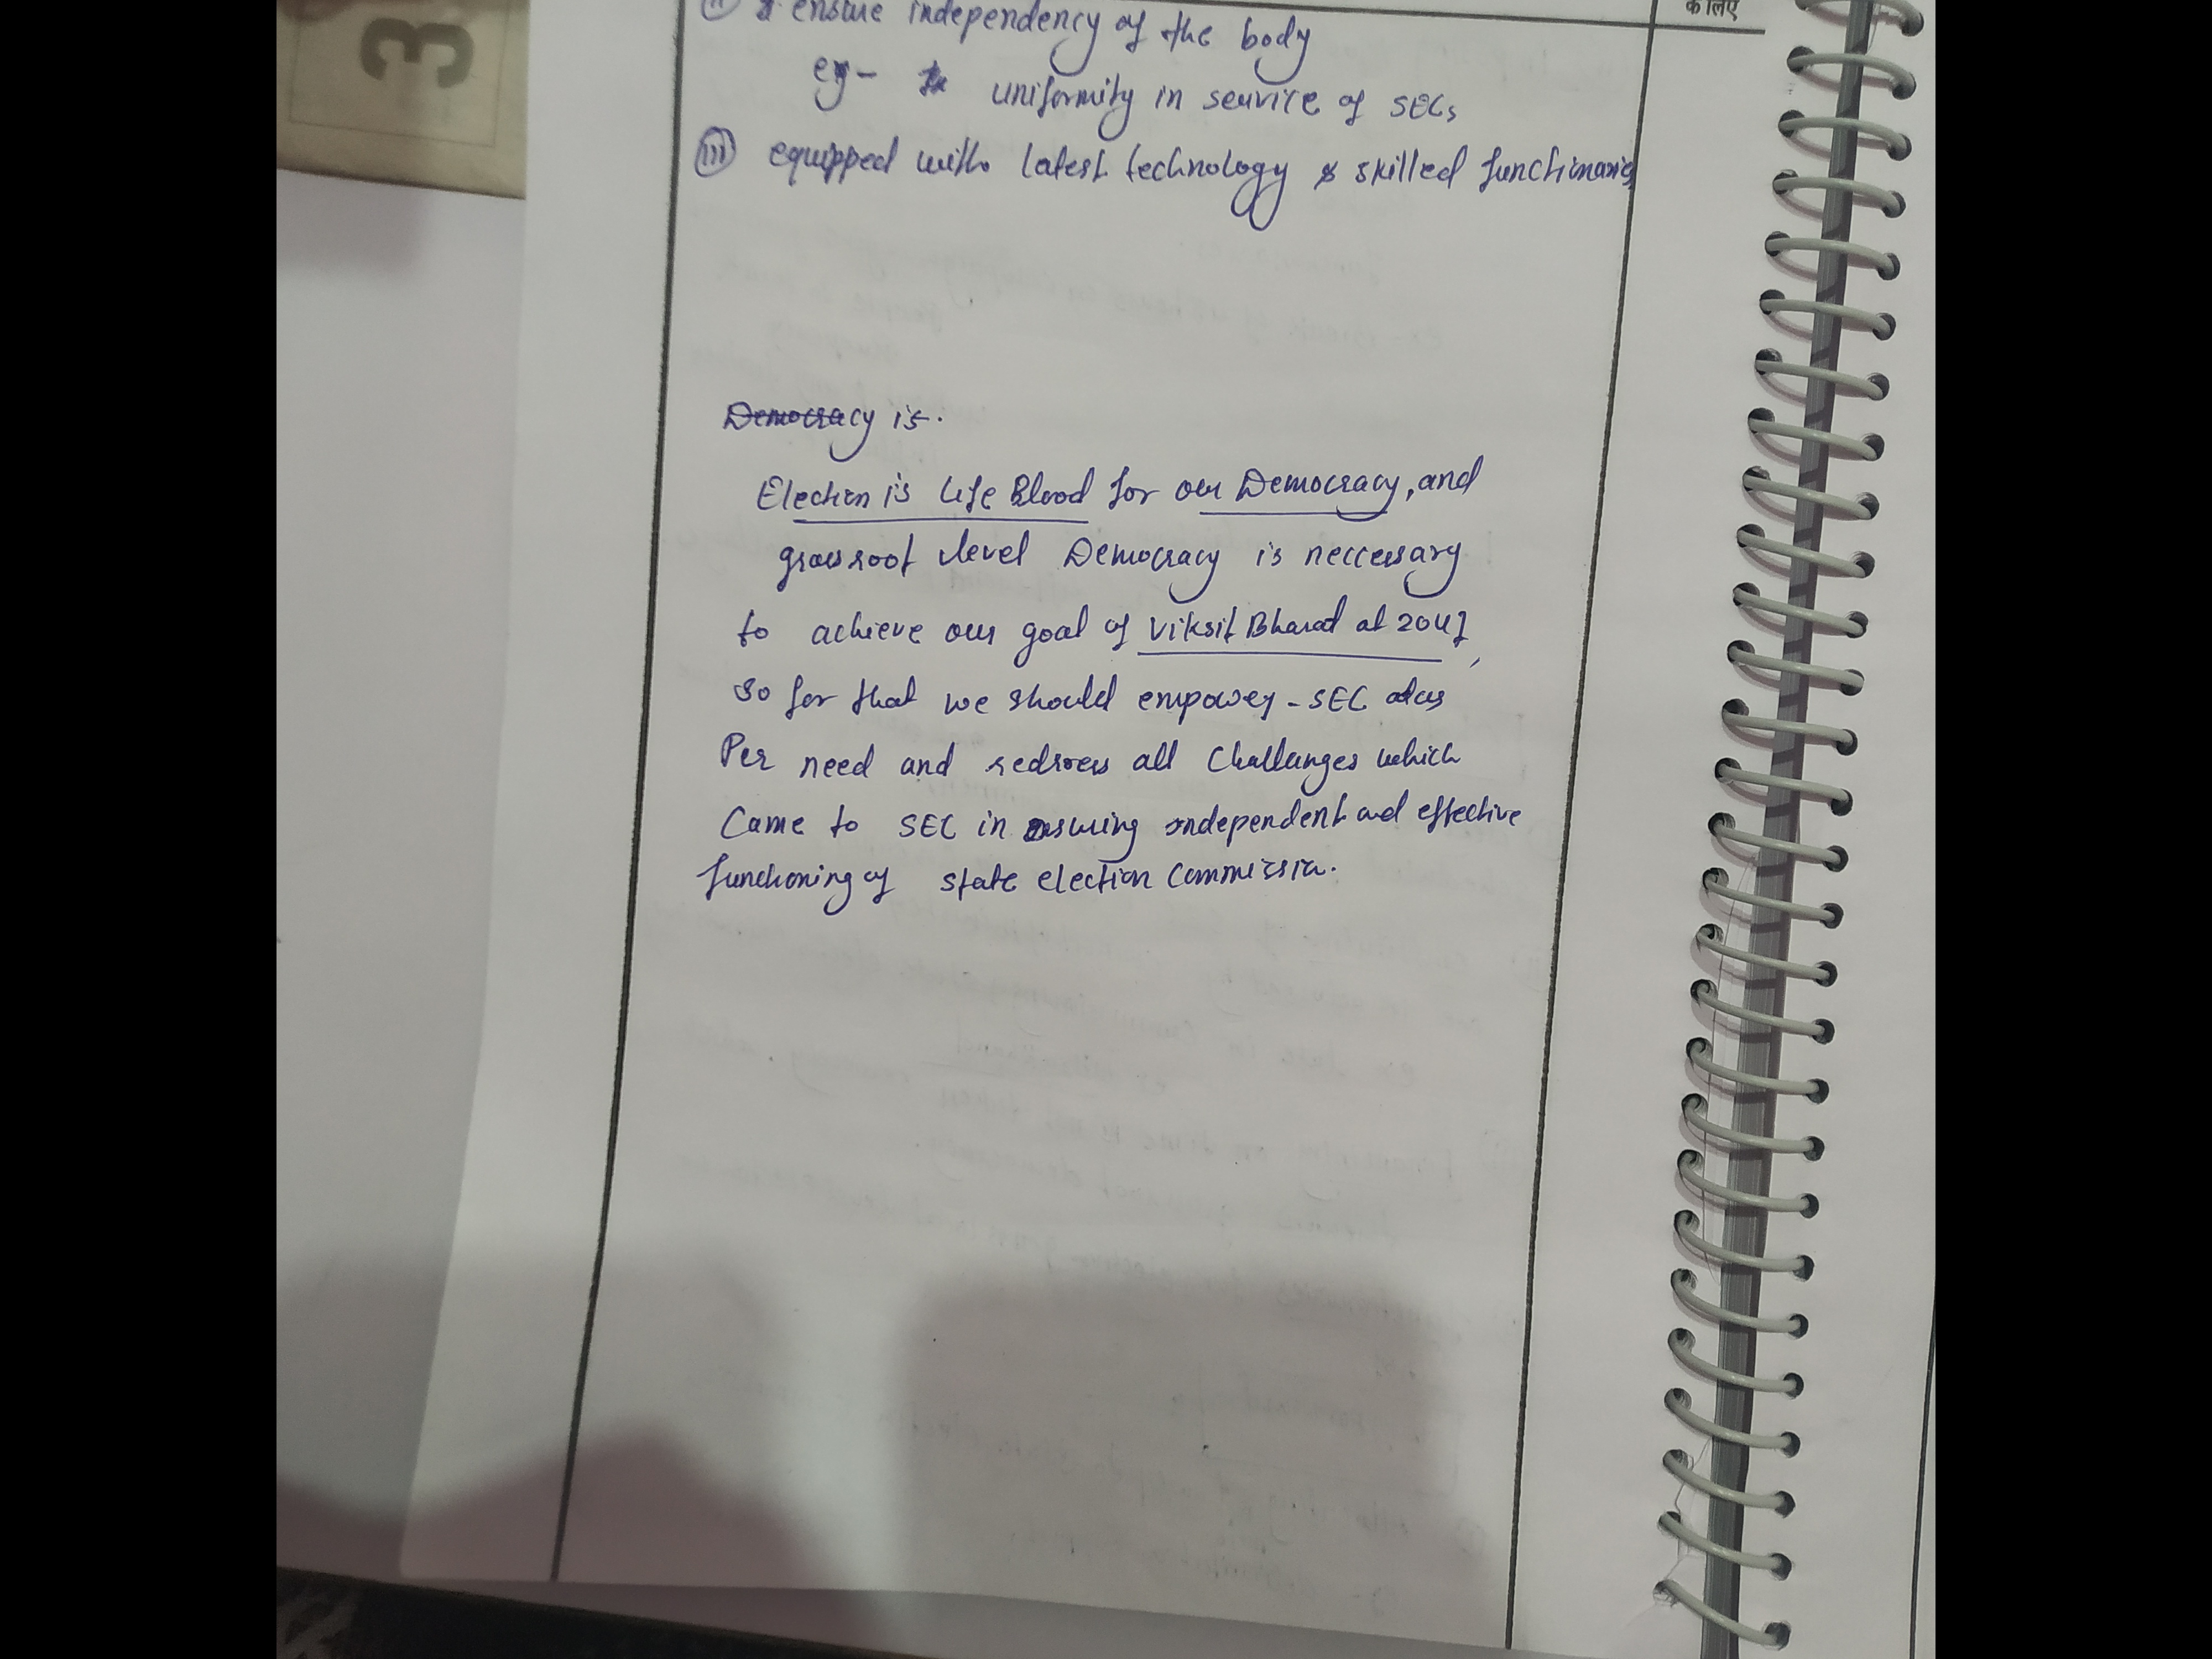 (ii) ensure independency of the body
के लिए
eg- uniformity in service of SECs
(iii) equipped with latest technology & skilled functionaries
3
Democracy is.
Election is Life Blood for our Democracy, and
grassroot level Democracy is neccessary
to achieve our goal of Viksit Bharat at 2047,
so for that we should empower - SEC as
Per need and redress all Challanges which
Came to SEC in ensuring independent and effective
functioning of state election Commission.